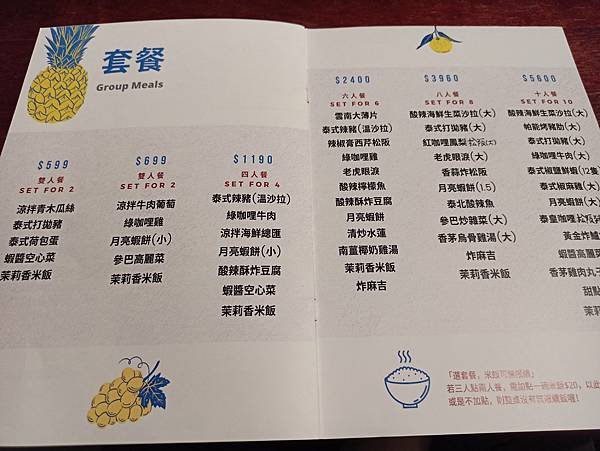 套餐
Group Meals
$599
雙人餐
SET FOR 2
涼拌青木瓜絲
泰式打拋豬
泰式荷包蛋
蝦醬空心菜
茉莉香米飯
$699
雙人餐
SET FOR 2
涼拌牛肉葡萄
綠咖哩雞
月亮蝦餅(小)
參巴高麗菜
茉莉香米飯
$1190
四人餐
SET FOR 4
泰式辣豬(溫沙拉)
綠咖哩牛肉
涼拌海鮮總匯
月亮蝦餅(小)
酸辣酥炸豆腐
蝦醬空心菜
茉莉香米飯
$2400
六人餐
SET FOR 6
雲南大薄片
泰式辣豬(溫沙拉)
辣椒膏西芹松阪
綠咖哩雞
老虎眼淚
酸辣檸檬魚
酸辣酥炸豆腐
月亮蝦餅
清炒水蓮
南薑椰奶雞湯
茉莉香米飯
炸麻吉
$3960
八人餐
SET FOR 8
酸辣海鮮生菜沙拉(大)
泰式打拋豬(大)
紅咖哩鳳梨松阪(大)
老虎眼淚(大)
香蒜炸松阪
月亮蝦餅(1.5)
泰北酸辣魚
參巴炒雜菜(大)
香茅烏骨雞湯(大)
炸麻吉
茉莉香米飯
$5600
十人餐
SET FOR 10
酸辣海鮮生菜沙拉(大)
帕能烤豬肋(大)
泰式打拋豬(大)
綠咖哩牛肉(大)
泰式椒鹽鮮蝦(12隻
泰式椒麻雞(大)
月亮蝦餅(大)
泰皇咖哩松阪
黃金炸鱸
蝦醬高麗菜
香茅雞肉丸子
甜點
茉莉
「選套餐，米飯可無限續」
若三人點兩人餐，需加點一碗米飯$20，以此
或是不加點，則整桌沒有無限續飯喔!